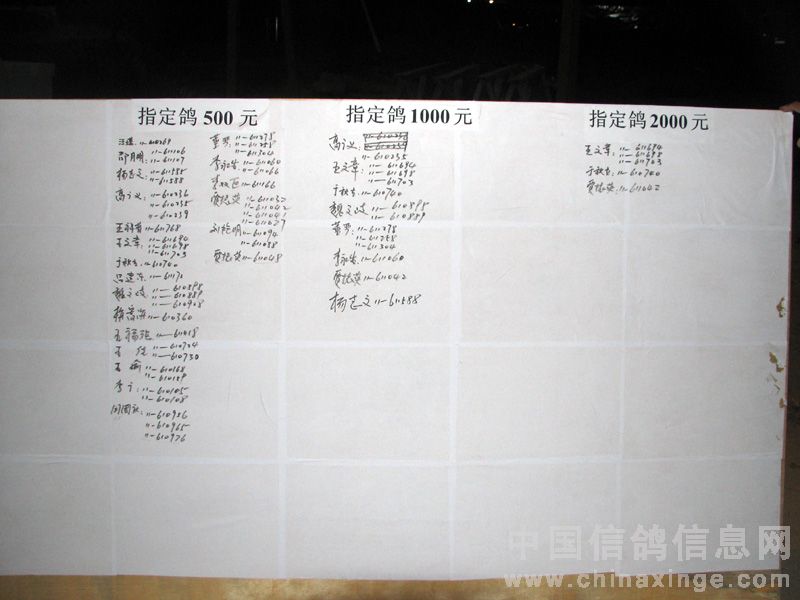 指定鸽 500 元
汪进: 11-610269
邵月明: 11-611106
11-611107
杨志文: 11-611585
11-611588
高广义: 11-610236
11-610235
11-610239
11-611768
王文章: 11-611694
11-611698
11-611703
于秋生: 11-610740
吕建东: 11-61172
魏文岐: 11-610898
11-610889
11-610908
11-610360
11-611418
11-610724
11-610730
王 瑜 11-610168
11-610189
李广: 11-610105
11-610108
11-610936
11-610965
11-610976
董梦: 11-611278
11-611258
11-611304
李永安 11-611060
11-611066
11-611166
贾振英: 11-611032
11-611042
11-611041
11-611027
刘艳明: 11-611094
11-611088
贾振英: 11-611048
指定鸽 1000 元
高广义:
11-610235
王文章: 11-611694
11-611698
11-611703
于秋生: 11-610740
魏文岐: 11-610898
11-610889
董梦: 11-611278
11-611258
11-611304
李永安: 11-611060
贾振英: 11-611042
杨志文 11-611588
指定鸽 2000 元
王文章: 11-611694
11-611698
11-611703
于秋生: 11-610740
贾振英 11-611042
中国信鸽信息网
www.chinaxinge.com